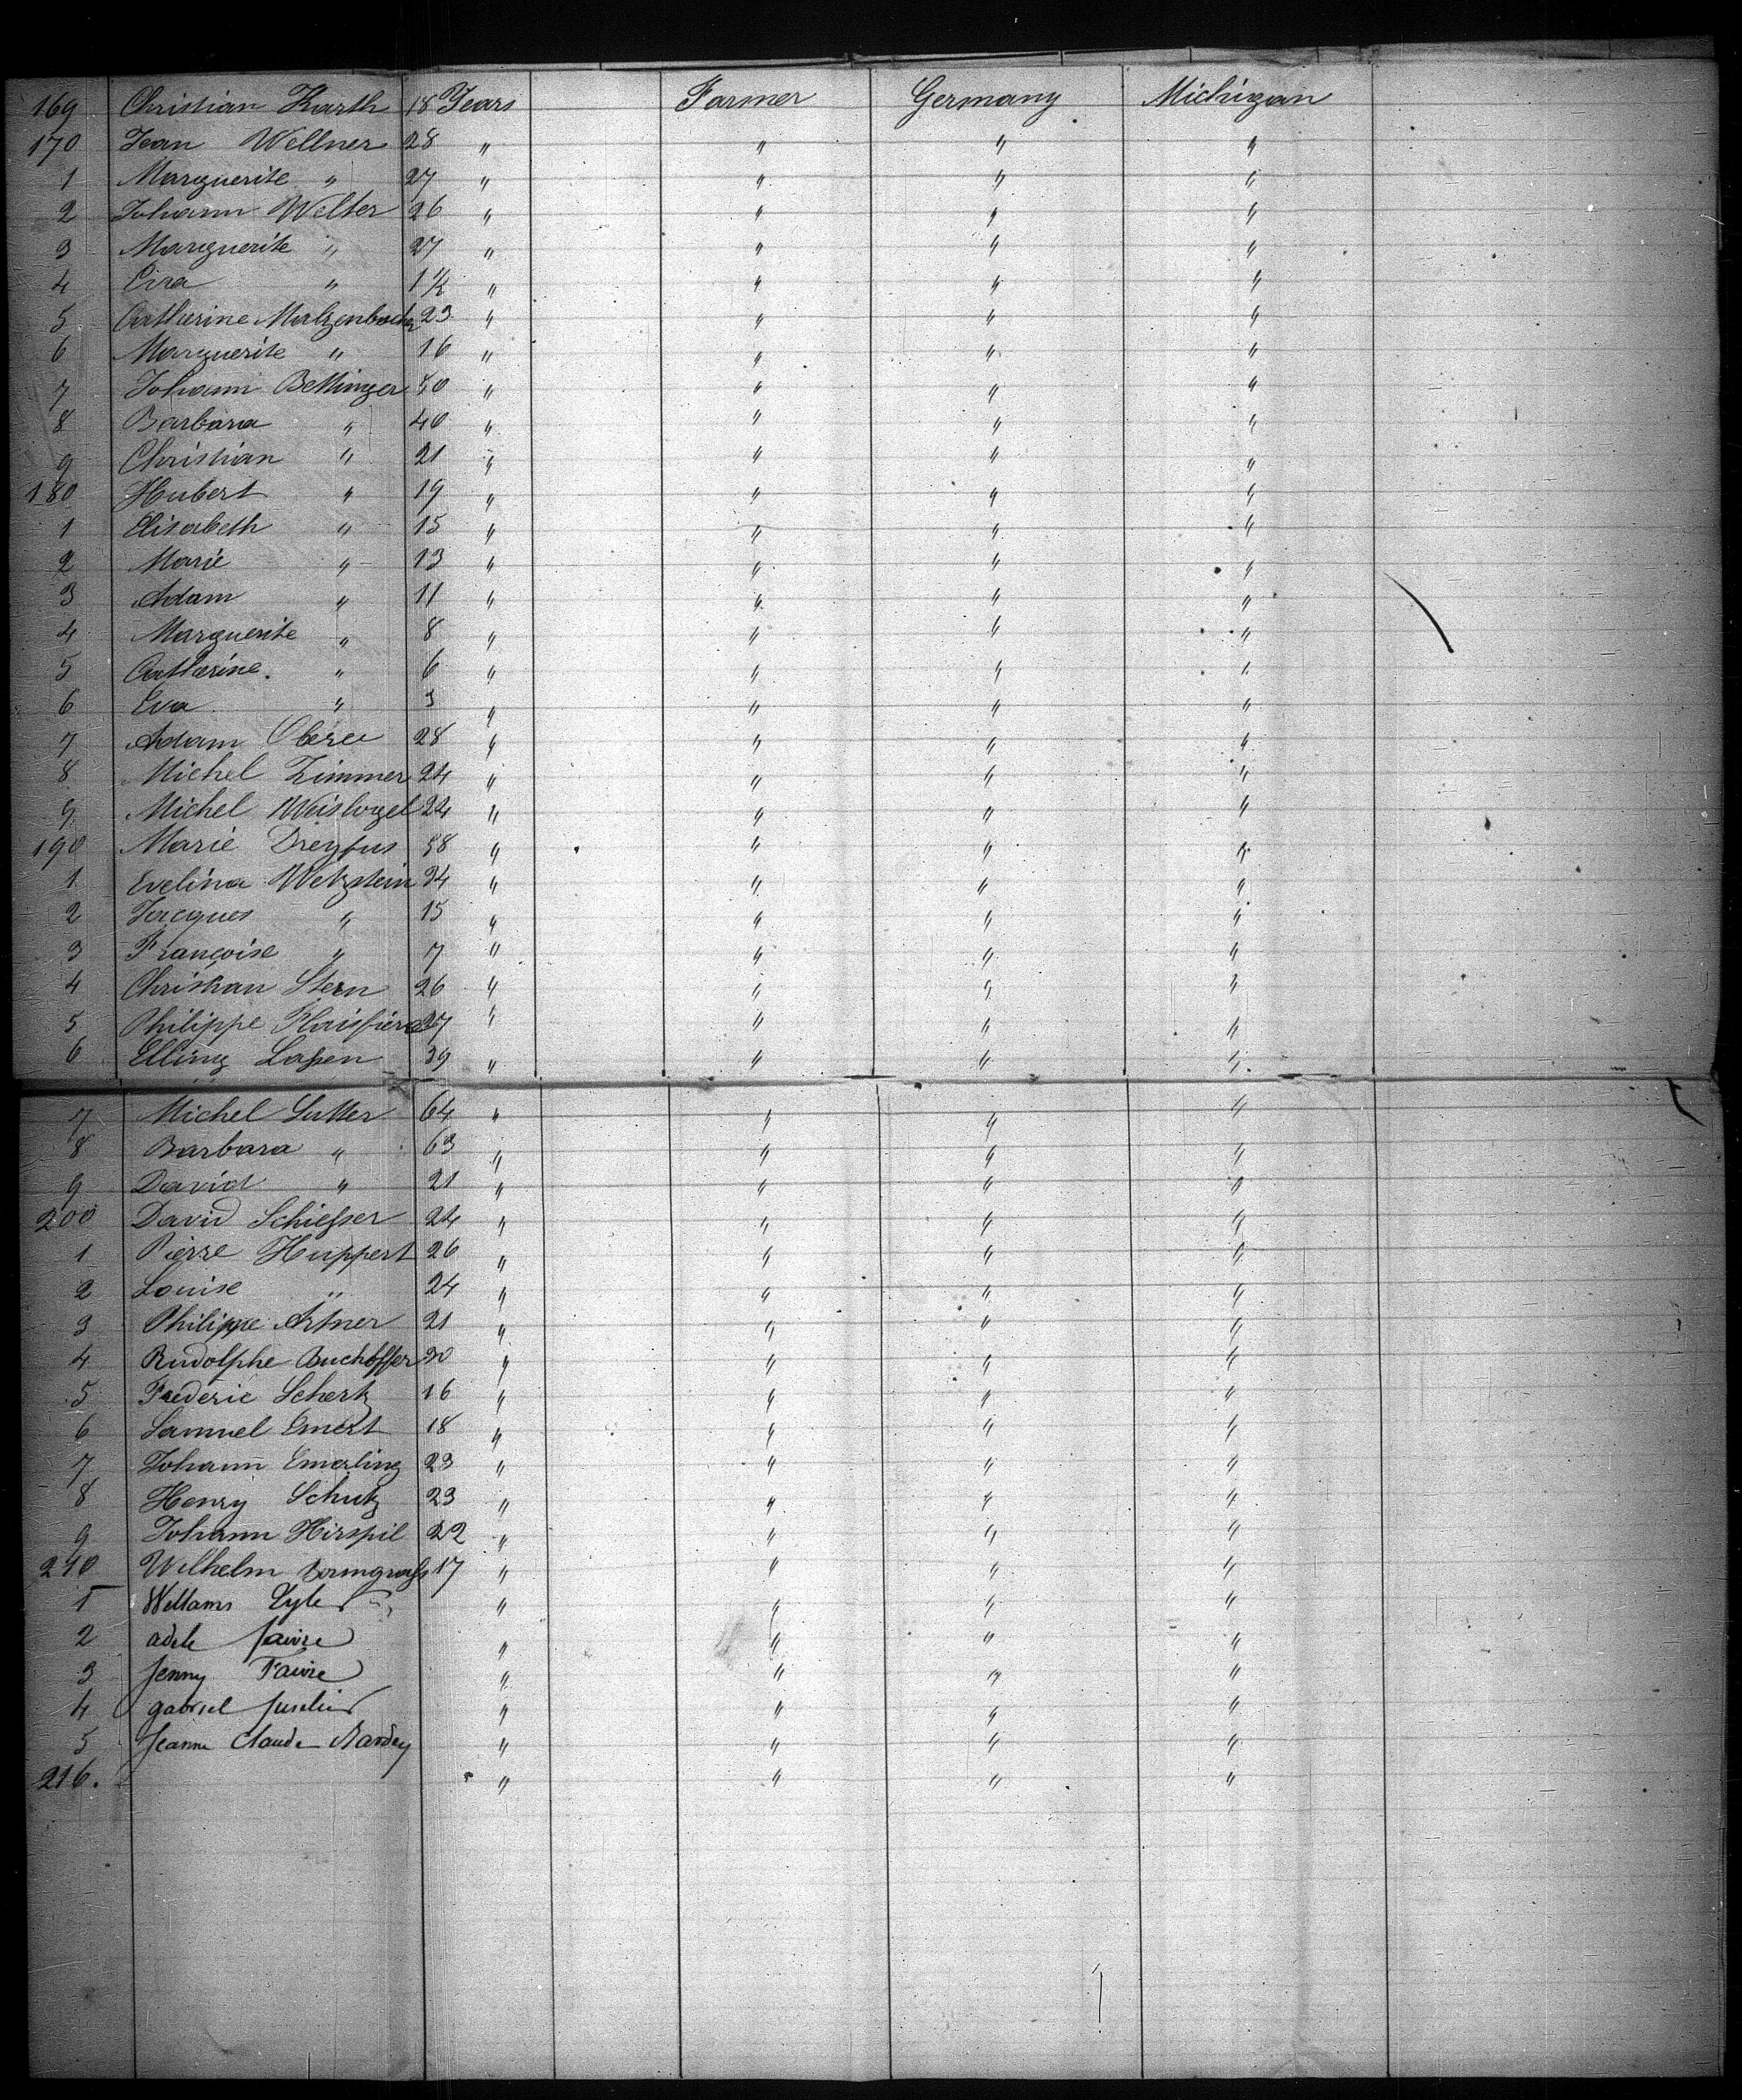 169 Christian Karth 18 Years Farmer Germany Michigan
170 Jean Wellner 28 " " " "
1 Marguerite " 27 " " " "
2 Johann Welter 26 " " " "
3 Marguerite " 27 " " " "
4 " 1½ " " " "
5 Catharine Matzenbacher 23 " " " "
6 Marguerite " 16 " " " "
7 Johann Bettinger " " " "
8 Barbara " 40 " " " "
9 Christian " 21 " " " "
180 Hubert " 19 " " " "
1 Elisabeth " 15 " " " "
2 Marie " 13 " " " "
3 Adam " 11 " " " "
4 Marguerite " 8 " " " "
5 Catharine " 6 " " " "
6 Eva " 3 " " " "
7 Adam 28 " " " "
8 Michel Zimmer 24 " " " "
9 Michel Weisvogel 24 " " " "
190 Marie Dreyfus 58 " " " "
1 Evelina Wetzstein 34 " " " "
2 Jacques " 15 " " " "
3 Françoise " 7 " " " "
4 Christian Stern 26 " " " "
5 Philippe 27 " " " "
6 Elling Laßen 39 " " " "
7 Michel Sutter 64 " " " "
8 Barbara " 63 " " " "
9 David " 21 " " " "
200 David Schießer 24 " " " "
1 Pierre Huppert 26 " " " "
2 Louise " 24 " " " "
3 Philippe Artner 21 " " " "
4 Rudolphe Buchoffer 30 " " " "
5 Frederic Schertz 16 " " " "
6 Samuel Emert 18 " " " "
7 Johann Emerling 23 " " " "
8 Henry Schutz 23 " " " "
9 Johann Hirspil 22 " " " "
210 Wilhelm 17 " " " "
1 Willams Lyle " " " "
2 adele faivre " " " "
3 Jenny Faivre " " " "
4 gabriel " " " "
5 Jeanne Claude " " " "
216. " " " "